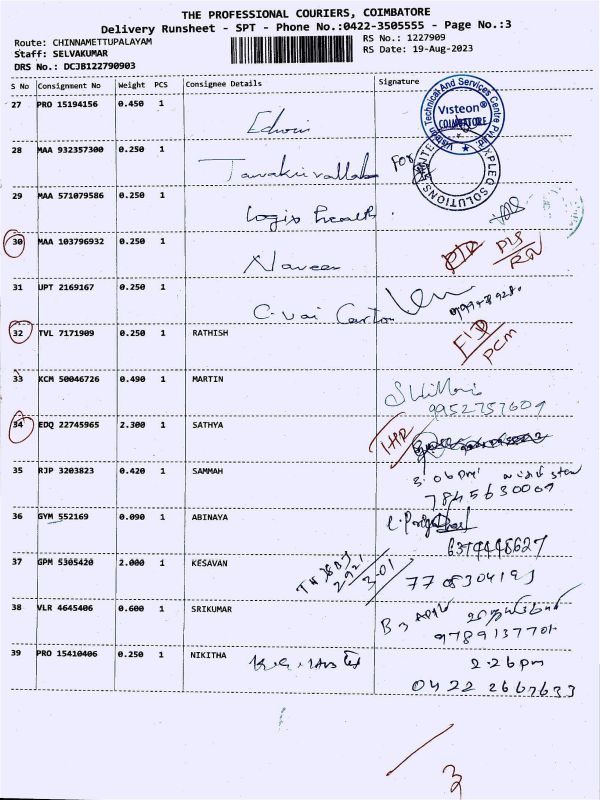 THE PROFESSIONAL COURIERS, COIMBATORE
Delivery Runsheet - SPT - Phone No.:0422-3505555 - Page No.:3
Route: CHINNAMETTUPALAYAM
RS No.: 1227909
Staff: SELVAKUMAR
RS Date: 19-Aug-2023
DRS No.: DCJB122790903
S No Consignment No Weight PCS Consignee Details Signature
27 PRO 15194156 0.450 1
Visteon Technical And Services Centre Pvt Ltd
Visteon®
COIMBATORE
28 MAA 932357300 0.250 1
For
29 MAA 571079586 0.250 1 Logix health
30 MAA 103796932 0.250 1 Naveen
31 UPT 2169167 0.250 1
32 TVL 7171909 0.250 1 RATHISH
33 KCM 50046726 0.490 1 MARTIN
9952757609
34 EDQ 22745965 2.300 1 SATHYA
35 RJP 3203823 0.420 1 SAMMAH 3.06pm
7845630009
36 GYM 552169 0.090 1 ABINAYA
6374448627
37 GPM 5305420 2.000 1 KESAVAN 3-01
38 VLR 4645406 0.600 1 SRIKUMAR
39 PRO 15410406 0.250 1 NIKITHA 2.26pm
0422 2667633
3